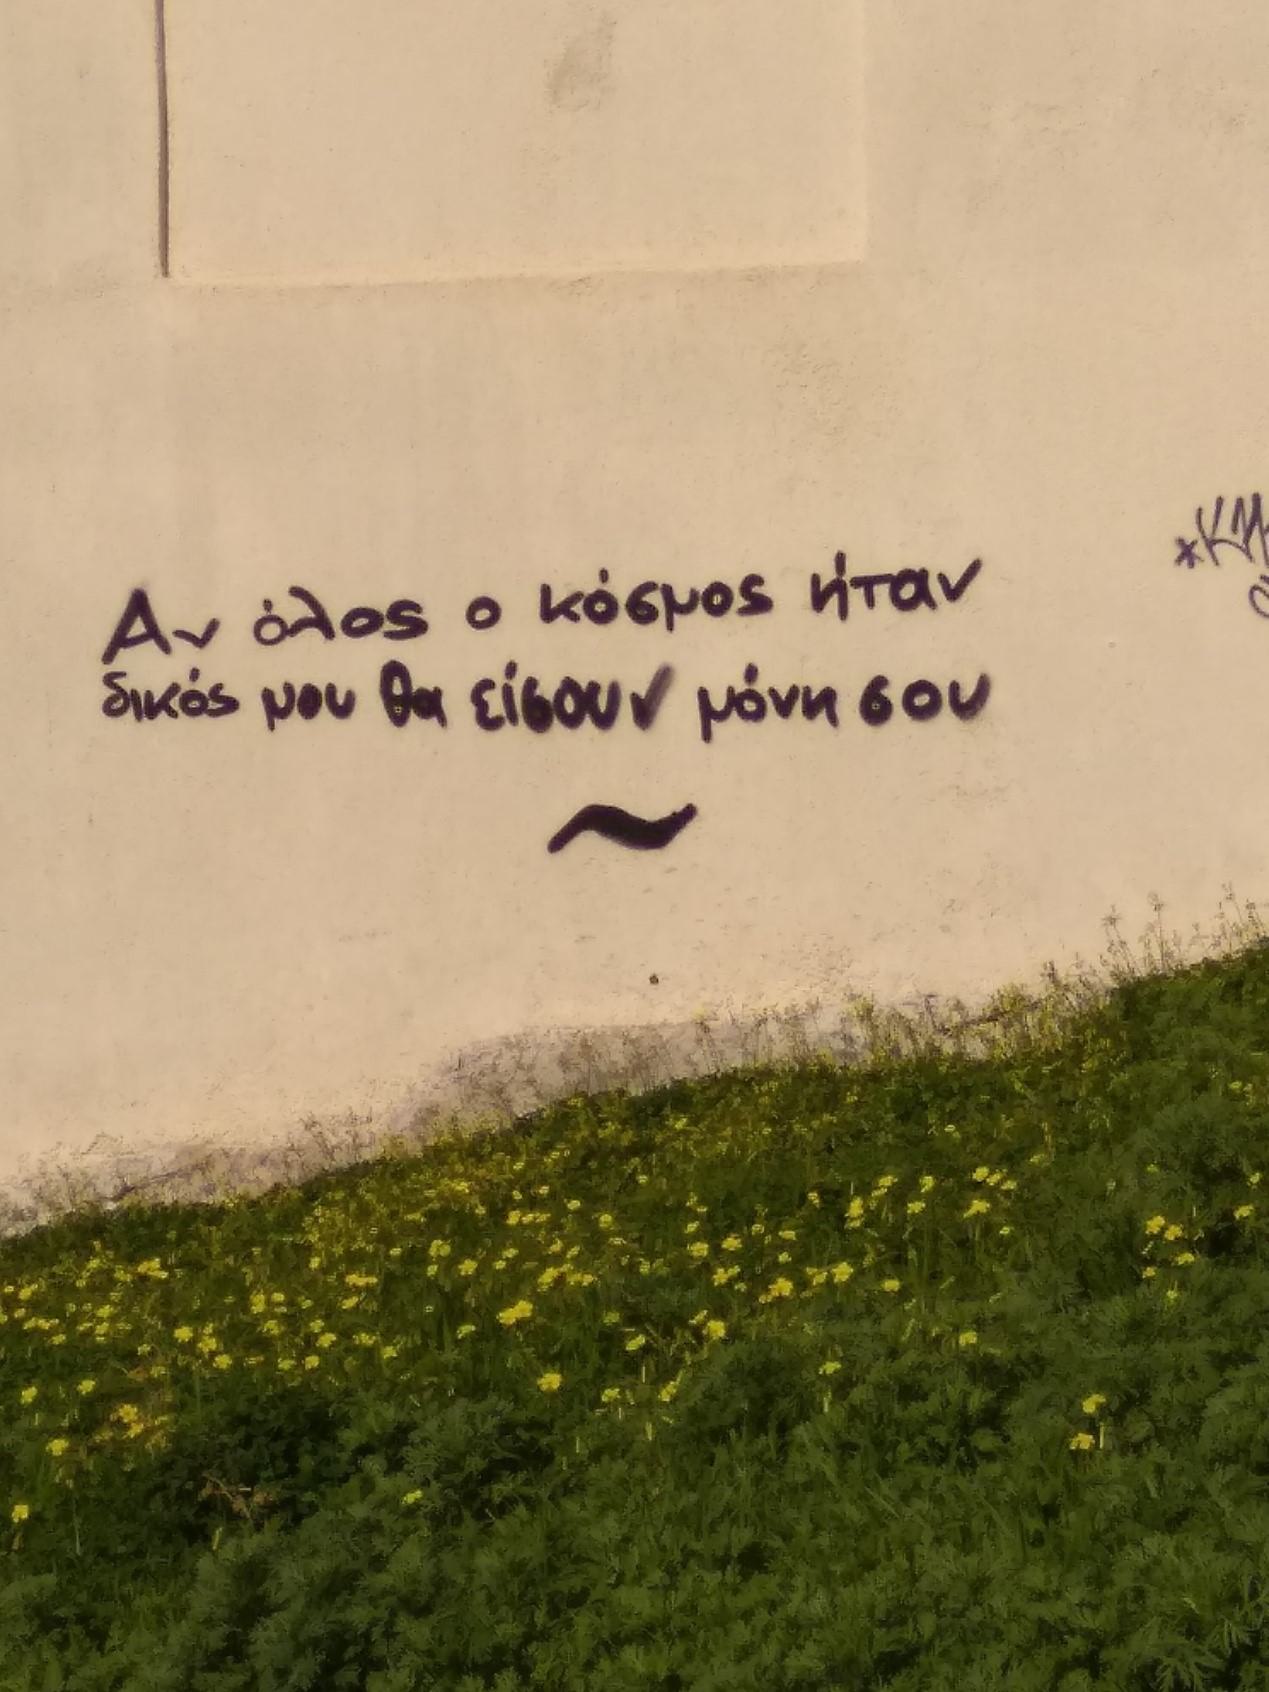 Αν όλος ο κόσμος ήταν
δικός μου θα είσουν μόνη σου
~